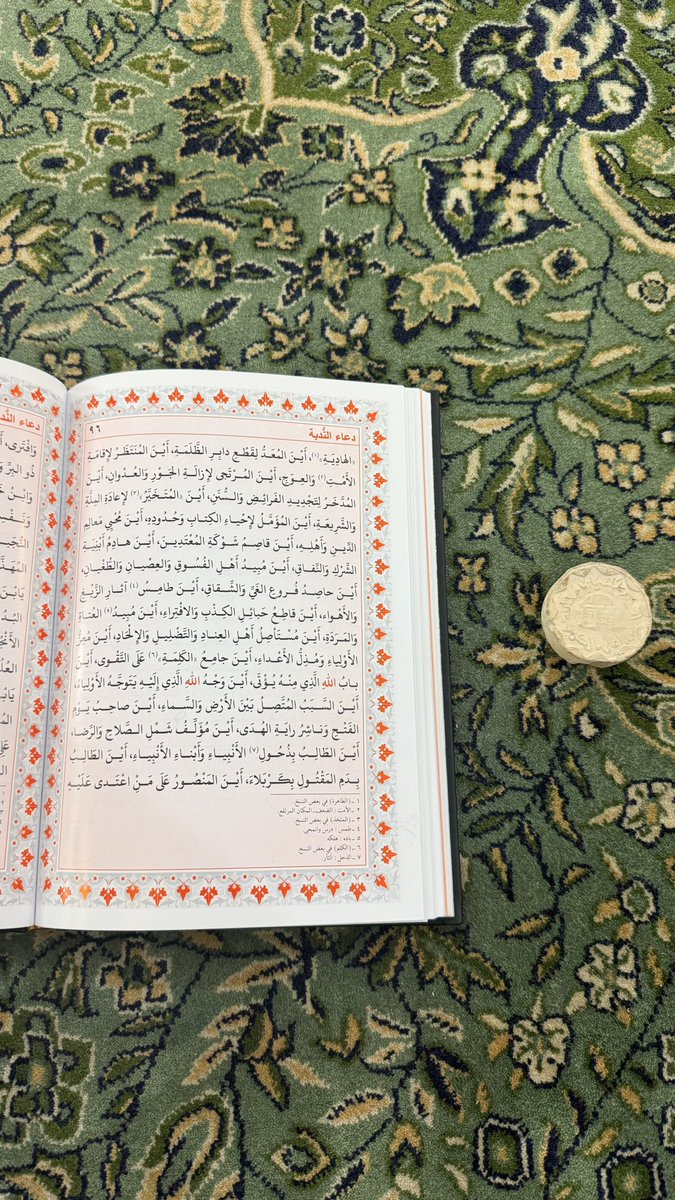 دعاء النُّدبة
٩٦
الهَادِيَةِ»(١)، أَيْنَ المُعَدُّ لِقَطْعِ دابِرِ الظَّلَمَةِ، أَيْنَ المُنْتَظَرُ لإِقامَةِ
الأَمْتِ(٢) وَالعِوَجِ، أَيْنَ المُرْتَجى لإِزالَةِ الجَوْرِ وَالعُدوانِ، أَيْنَ
المُدَّخَرُ لِتَجْدِيدِ الفَرائِضِ وَالسُّنَنِ، أَيْنَ «المُتَخَيَّرُ»(٣) لإِعادَةِ المِلَّةِ
وَالشَّرِيعَةِ، أَيْنَ المُؤَمَّلُ لإِحْياءِ الكِتابِ وَحُدُودِهِ، أَيْنَ مُحْيِي مَعالِمِ
الدّينِ وَأَهْلِهِ، أَيْنَ قاصِمُ شَوْكَةِ المُعْتَدِينَ، أَيْنَ هادِمُ أَبْنِيَةِ
الشِّرْكِ وَالنِّفاقِ، أَيْنَ مُبِيدُ أَهْلِ الفُسُوقِ وَالعِصْيانِ وَالطُّغْيانِ،
أَيْنَ حاصِدُ فُروعِ الغَيِّ وَالشِّقاقِ، أَيْنَ طامِسُ(٤) آثارِ الزَّيْغِ
وَالأَهْواءِ، أَيْنَ قاطِعُ حَبائِلِ الكِذْبِ وَالافْتِراءِ، أَيْنَ مُبِيدُ(٥) العُتاةِ
وَالمَرَدَةِ، أَيْنَ مُسْتَأْصِلُ أَهْلِ العِنادِ وَالتَّضْلِيلِ وَالإِلْحادِ، أَيْنَ مُعِزُّ
الأَوْلِياءِ وَمُذِلُّ الأَعْداءِ، أَيْنَ جامِعُ «الكَلِمَةِ»(٦) عَلَى التَّقْوى، أَيْنَ
بابُ اللهِ الَّذِي مِنْهُ يُؤْتَى، أَيْنَ وَجْهُ اللهِ الَّذِي إِلَيْهِ يَتَوَجَّهُ الأَوْلِياءُ،
أَيْنَ السَّبَبُ المُتَّصِلُ بَيْنَ الأَرْضِ وَالسَّماءِ، أَيْنَ صاحِبُ يَوْمِ
الفَتْحِ وَناشِرُ رايَةِ الهُدَى، أَيْنَ مُؤَلِّفُ شَمْلِ الصَّلاحِ وَالرِّضا،
أَيْنَ الطّالِبُ بِذُحُولِ(٧) الأَنْبِياءِ وَأَبْناءِ الأَنْبِياءِ، أَيْنَ الطّالِبُ
بِدَمِ المَقْتُولِ بِكَرْبَلاءَ، أَيْنَ المَنْصُورُ عَلَى مَنِ اعْتَدى عَلَيْهِ
١ ـ (الطاهرة) في بعض النسخ.
٢ ـ الأمت : الضعف ـ المكان المرتفع
٣ ـ (المتخذ) في بعض النسخ.
٤ ـ طمس : درس وانمحى
٦ ـ (الكلم) في بعض النسخ.
٧ ـ الذحل : الثأر.
دعاء النُّدبة